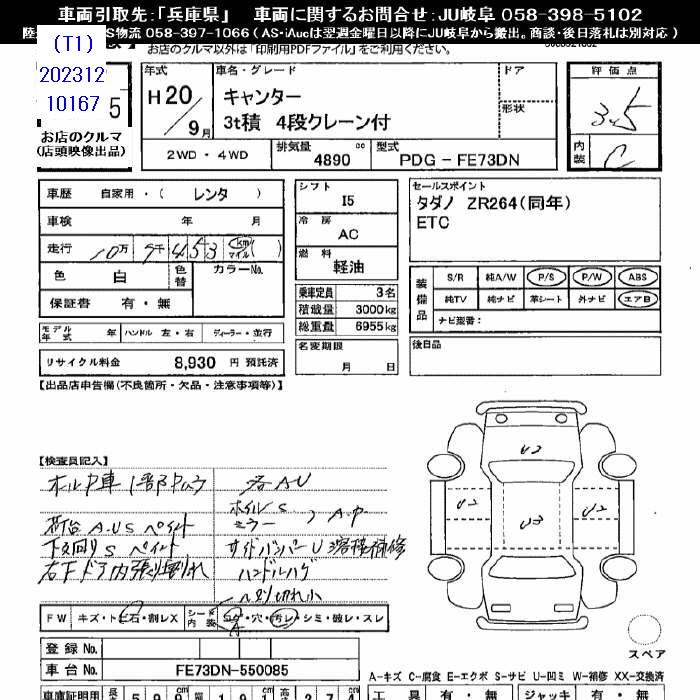 車両引取先:「兵庫県」 車両に関するお問合せ:JU岐阜 058-398-5102
S物流 058-397-1066 ( AS・iAucは翌週金曜日以降にJU岐阜から搬出。商談・後日落札は別対応 )
お店のクルマ以外は「印刷用PDFファイル」をご利用ください。
(T1)
202312
10167
5
お店のクルマ
(店頭映像出品)
年式 H20/9月
車名・グレード
キャンター
3t積 4段クレーン付
ドア
形状
評価点
3.5
内装 C
2WD・4WD 排気量 4890 cc 型式 PDG-FE73DN
車歴 自家用・( レンタ )
車検 年 月
走行 10万 9千 453 km マイル ( )
色 白 色替 カラーNo.
保証書 有・無
モデル年式 年 ハンドル 左・右 ディーラー・並行
リサイクル料金 8,930 円 預託済
シフト I5
冷房 AC
燃料 軽油
乗車定員 3名
積載量 3000kg
総重量 6955kg
名変期限
月 日
セールスポイント
タダノ ZR264(同年)
ETC
装備品
S/R 純A/W P/S P/W ABS
純TV 純ナビ 革シート 外ナビ エアB
ナビ型番:
後日品
【出品店申告欄(不良箇所・欠品・注意事項等)】
【検査員記入】
荷台 A.U.S ペイント
下回り S ペイント
右下ドア内張り切れ
各AU
ホイル S
ミラー ) A.P
サイドバンパー U 溶接補修
ハンドルハゲ
U2
U2
U3
U2
FW キズ・トビ石・割レX シート内装 コゲ・穴・汚レ・シミ・破レ・スレ
A
登録No.
車台No. FE73DN-550085
スペア
A-キズ C-腐食 E-エクボ S-サビ U-凹ミ W-補修 XX-交換済
車庫証明用
工具 有・無 ジャッキ 有・無